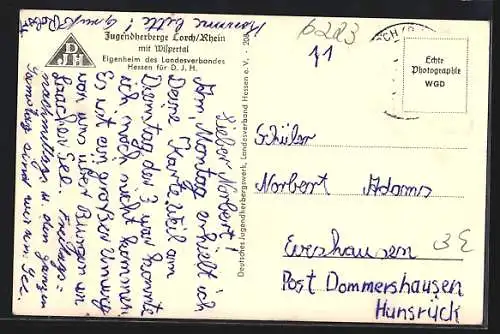 Jugendherberge Lorch/Rhein
mit Wispertal
Eigenheim des Landesverbandes
Hessen für D. J. H.
D
J H
Lieber Norbert!
Am Montag erhielt ich
Deine Karte. Weil am
Dienstag der 3. war konnte
ich noch nicht kommen.
Es ist ein großer Umweg
von uns über Burgen
nachmittags u. den ganzen
Samstag sind wir
Komme bitte! Gruß Robert
Deutsches Jugendherbergswerk, Landesverband Hessen e. V.
6223
11
Echte
Photographie
WGD
Schüler
Norbert Adams
Eveshausen
3E
Post Dommershausen
Hunsrück